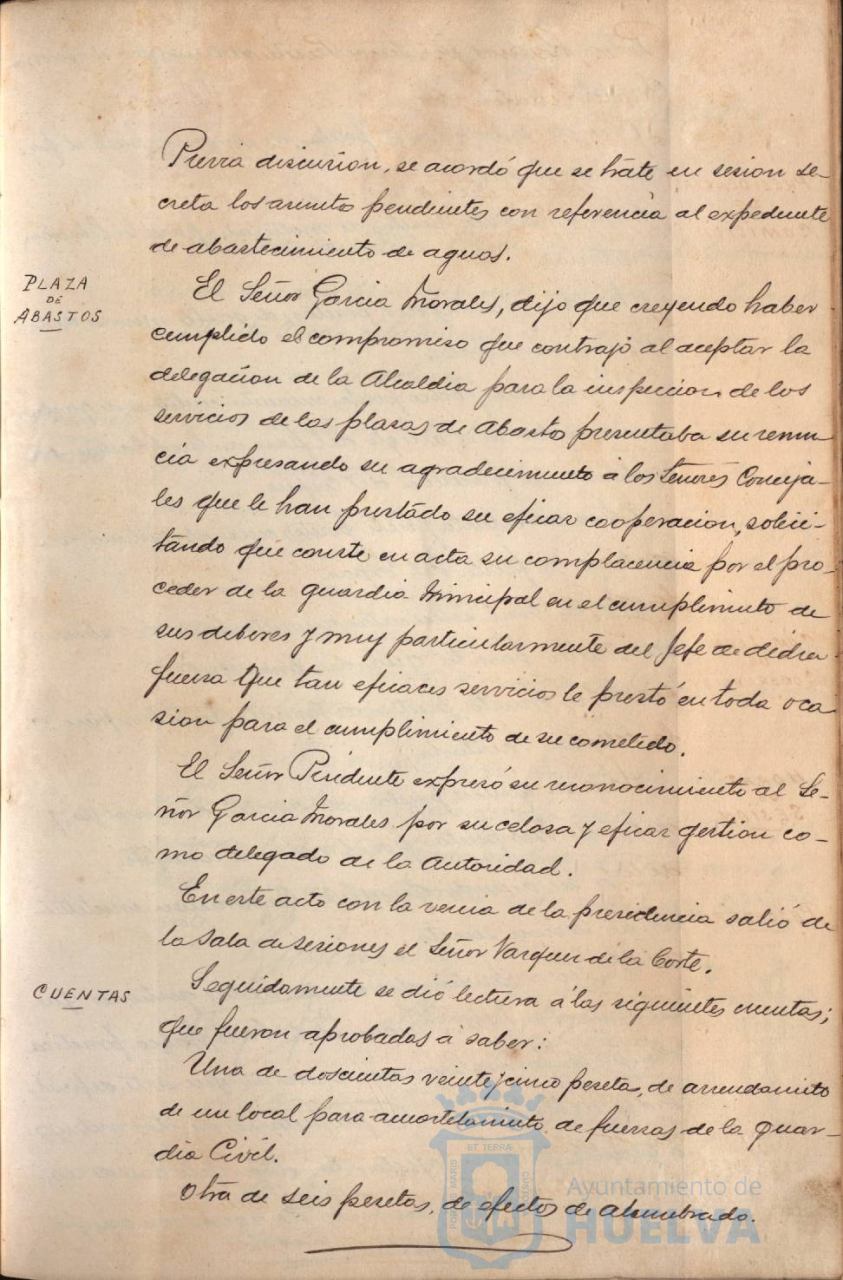 Previa discusion, se acordó que se trate en sesion se-
creta los asunto pendientes con referencia al expediente
de abastecimiento de aguas.
PLAZA
DE
ABASTOS
El Señor Garcia Morales, dijo que creyendo haber
cumplido el compromiso que contrajo al aceptar la
delegacion de la Alcaldia para la inspeccion de los
servicios de las plasas de Abasto presentaba su renun
cia expresando su agradecimiento á los Señores Conceja-
les que le han prestado su eficaz cooperacion, solici-
tando que conste en acta su complacencia por el pro-
ceder de la guardia Municipal en el cumplimiento de
sus deberes y muy particularmente del Jefe de dicha
fuersa que tan eficaces servicios le prestó en toda oca
sion para el cumplimiento de su cometido.
El Señor Presidente expresó su reconocimiento al Se-
ñor Garcia Morales por su celosa y eficaz gestion co-
mo delegado de la Autoridad.
En este acto con la venia de la presidencia salió de
la Sala de sesiones el Señor Vazquez de la Corte.
CUENTAS
Seguidamente se dió lectura á las siguientes cuentas;
que fueron aprobadas á saber:
Una de doscientas veinte y cinco peseta, de arrendamiento
de un local para acuartelamiento de fuerzas de la Guar-
dia Civil.
Otra de seis pesetas, de efectos de alumbrado.
PORTUS MARIS ET TERRAE CUSTODIA
Ayuntamiento de
HUELVA